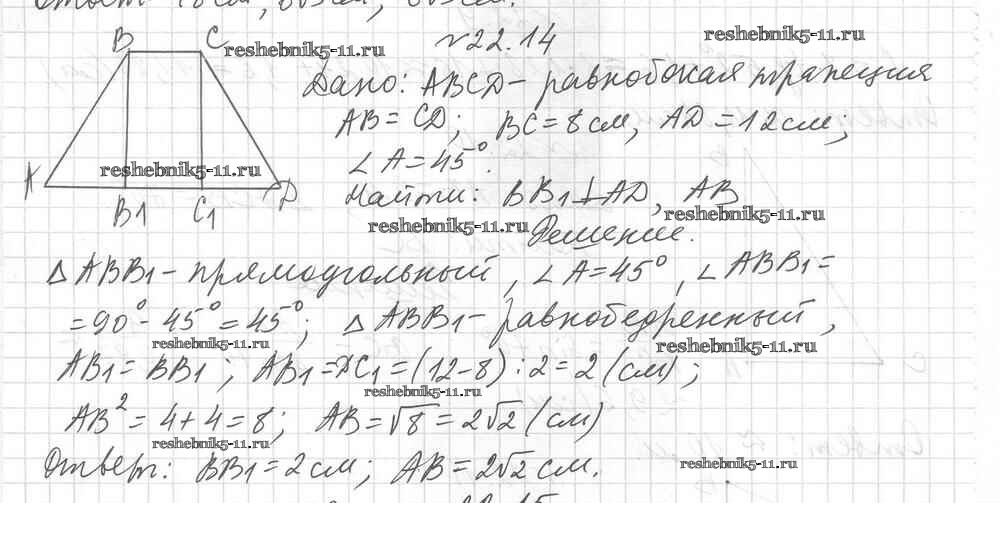 Ответ: 18 см, 8√3 см, 8√3 см.
B C reshebnik5-11.ru №22.14 reshebnik5-11.ru
Дано: ABCD – равнобокая трапеция
AB = CD; BC = 8 см, AD = 12 см;
reshebnik5-11.ru ∠A = 45°.
A D Найти: BB1 ⊥ AD, AB
B1 C1 reshebnik5-11.ru reshebnik5-11.ru
Решение.
△ABB1 – прямоугольный, ∠A = 45°, ∠ABB1 =
= 90° - 45° = 45°; △ABB1 – равнобедренный,
reshebnik5-11.ru reshebnik5-11.ru
AB1 = BB1; AB1 = DC1 = (12 - 8) : 2 = 2 (см);
reshebnik5-11.ru
AB² = 4 + 4 = 8; AB = √8 = 2√2 (см)
reshebnik5-11.ru reshebnik5-11.ru
Ответ: BB1 = 2 см; AB = 2√2 см.